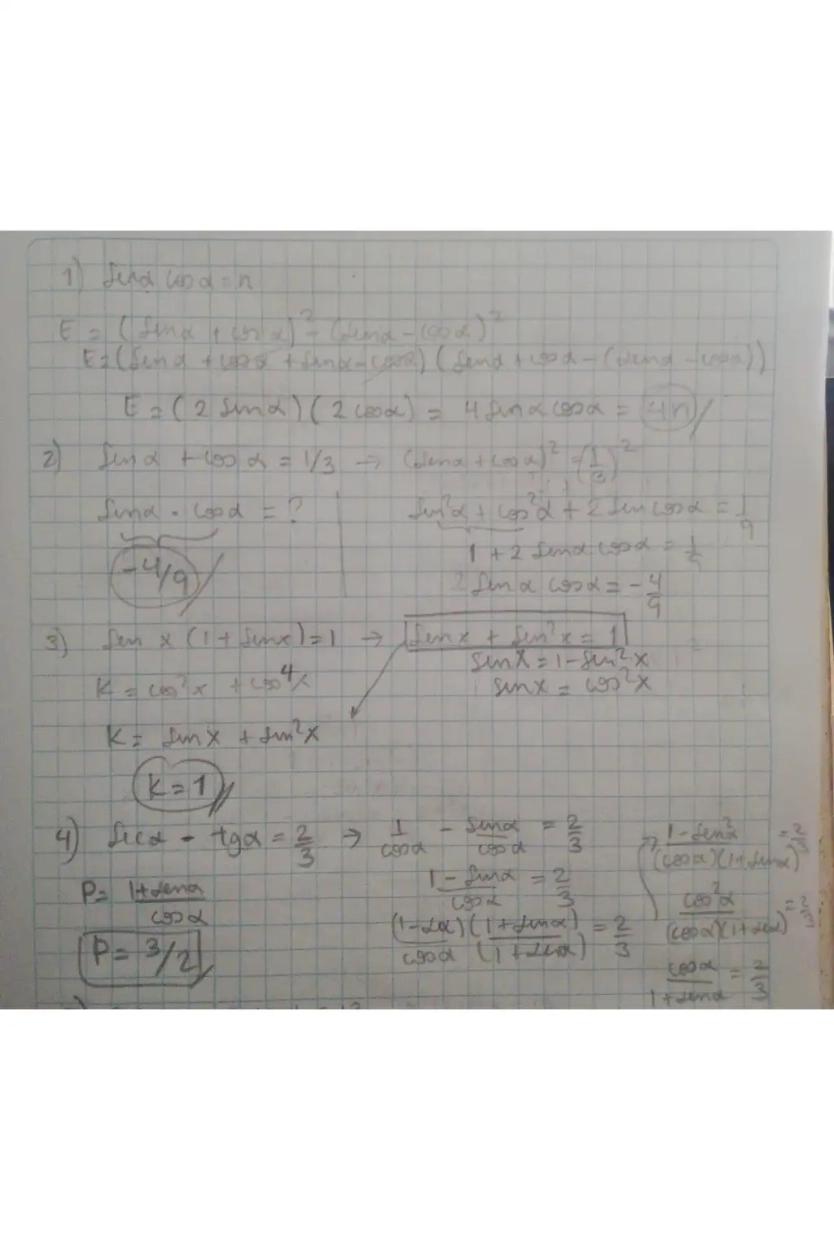 1) Senα cosα = n
E = (senα + cosα)² - (senα - cosα)²
E = (senα + cosα + senα - cosα) (senα + cosα - (senα - cosα))
E = (2 senα) (2 cosα) = 4 senα cosα = 4n
2) Senα + cosα = 1/3 → (senα + cosα)² = (1/3)²
Senα · cosα = ?
sen²α + cos²α + 2 sen cosα = 1/9
1 + 2 senα cosα = 1/9
-4/9
2 senα cosα = -4/9
3) Sen x (1 + senx) = 1 → senx + sen²x = 1
senx = 1 - sen²x
K = cos²x + cos⁴x
senx = cos²x
K = senx + sen²x
K = 1
4) Secα - tgα = 2/3 → 1/cosα - senα/cosα = 2/3
1 - senα/cosα = 2/3
P = 1+senα/cosα
(1-senα)/cosα (1+senα)/(1+senα) = 2/3
P = 3/2
→ 1-sen²/(cosα)(1+senα) = 2/3
cos²α/(cosα)(1+senα) = 2/3
cosα/1+senα = 2/3